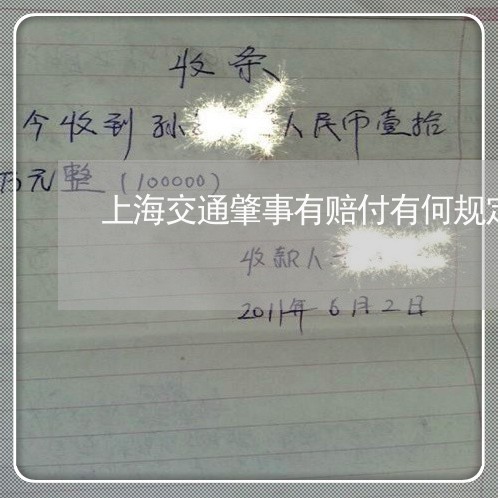 收条
今收到孙 人民币壹拾
万元整（100000）
上海交通肇事有赔付有何规定
收款人
2011年6月2日